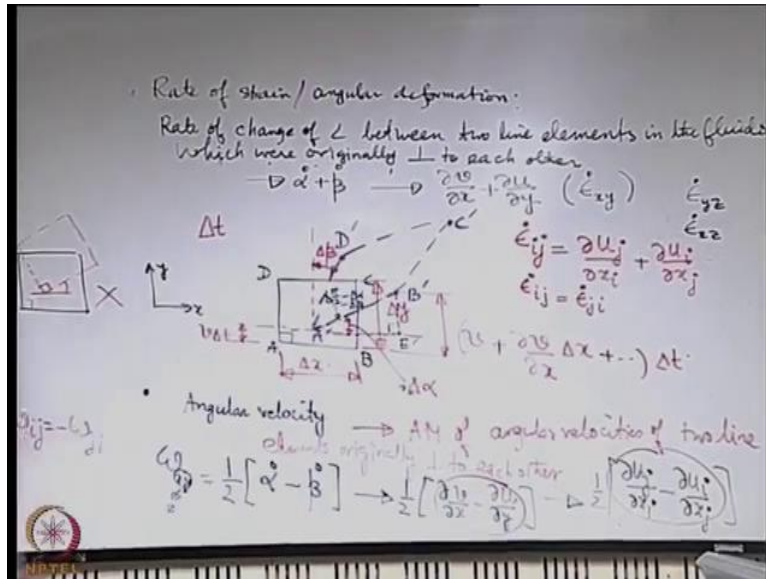 Rate of strain / angular deformation.
Rate of change of ∠ between two line elements in the fluids
which were originally ⊥ to each other
→ α̇ + β̇ → ∂v/∂x + ∂u/∂y (ε̇xy)
ε̇yz
ε̇xz
Δt
ε̇ij = ∂uj/∂xi + ∂ui/∂xj
ε̇ij = ε̇ji
y
x
Δβ
D'
C'
D
C
B'
Δy
A'
E'
A
B
vΔt
Δx
Δα
(v + ∂v/∂x Δx + ...) Δt
Angular velocity → AM of angular velocities of two line
elements originally ⊥ to each other
= 1/2 [α̇ - β̇] → 1/2 [∂v/∂x - ∂u/∂y] → 1/2 [∂uj/∂xi - ∂ui/∂xj]
NPTEL